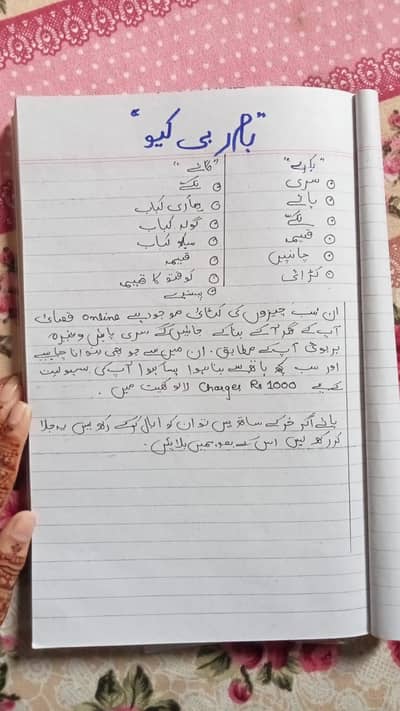 "باربی کیو"
"بکرے"
سری
پائے
تکے
قیمہ
چانپیں
کڑاہی
"گائے"
تکے
بہاری کباب
گولہ کباب
سیخ کباب
قیمہ
کوفتو کا قیمہ
پسندے
ان سب چیزوں کی کٹائی موجود ہے online قصائی
آپ کے گھر آکے بنا کے جائیں گے سری پائے وغیرہ
ہر بوٹی آپ کے مطابق. ان میں سے جو بھی بنوانا چاہیے
اور سب کچھ ہاتھ سے بنا ہوا پسا ہوا آپ کی سہولیت
کے لیے Charges Rs 1000 لائو گیٹ میں.
پائے اگر کھر کے ساتھ ہیں تو ان کو ابال کر کے رکھیں یہ جلا
کر رکھ لیں اس کے بعد ہمیں بلائیں.